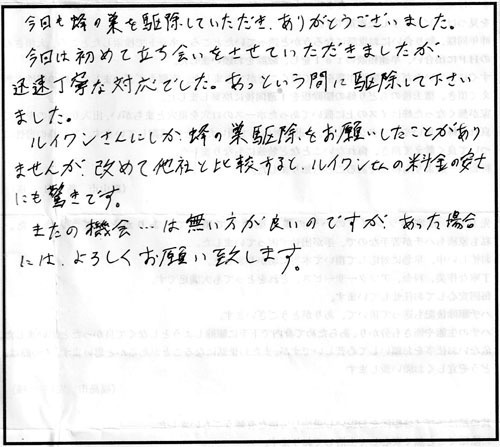 今回も蜂の巣を駆除していただき、ありがとうございました。
今回は初めて立ち会いをさせていただきましたが
迅速丁寧な対応でした。あっという間に駆除して下さい
ました。
ルイワンさんにしか、蜂の巣駆除をお願いしたことがあり
ませんが、改めて他社と比較すると、ルイワンさんの料金の安さ
にも驚きです。
またの機会…は無い方が良いのですが、あった場合
には、よろしくお願い致します。